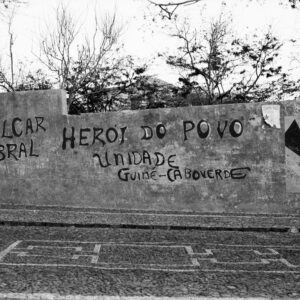 LCAR
BRAL
HEROI DO POVO
UNIDADE
GUINÉ-CABOVERDE